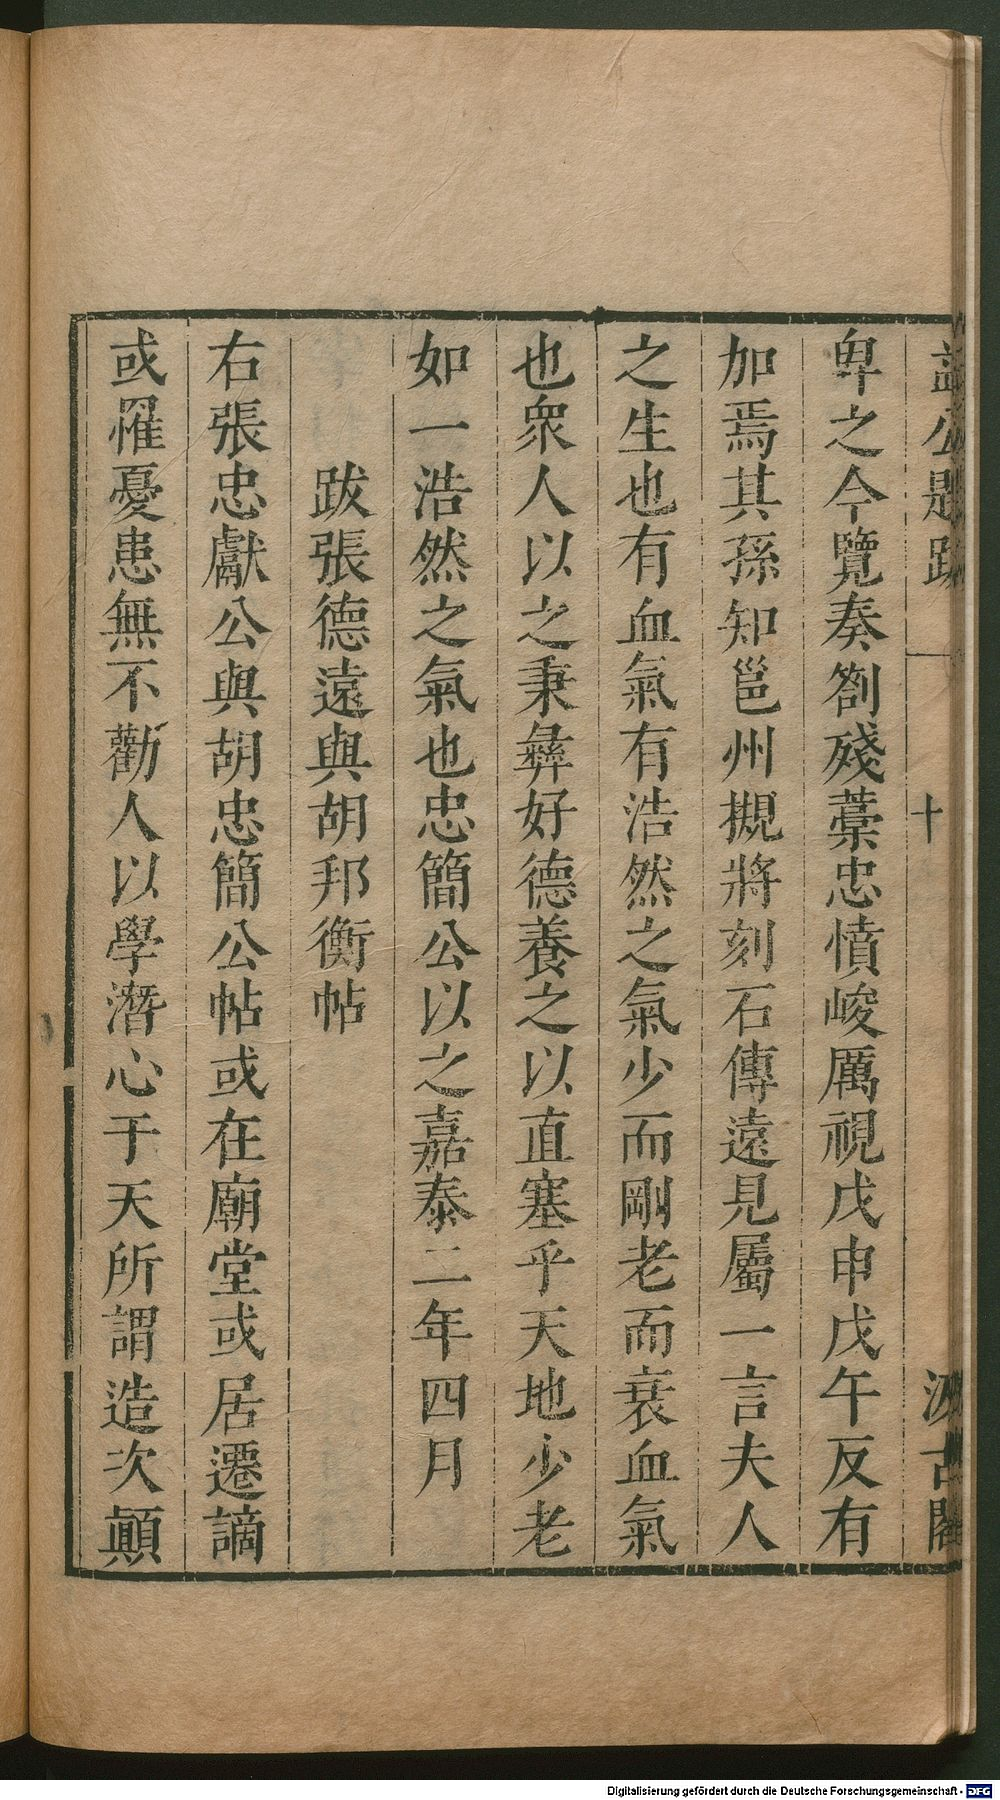 益公題跋 十 汲古閣
卑之今覽奏劄殘藁忠憤峻厲視戊申戊午反有
加焉其孫知邕州槻將刻石傳遠見屬一言夫人
之生也有血氣有浩然之氣少而剛老而衰血氣
也衆人以之秉彝好德養之以直塞乎天地少老
如一浩然之氣也忠簡公以之嘉泰二年四月
跋張德遠與胡邦衡帖
右張忠獻公與胡忠簡公帖或在廟堂或居遷謫
或罹憂患無不勸人以學潛心于天所謂造次顚
Digitalisierung gefördert durch die Deutsche Forschungsgemeinschaft - DFG